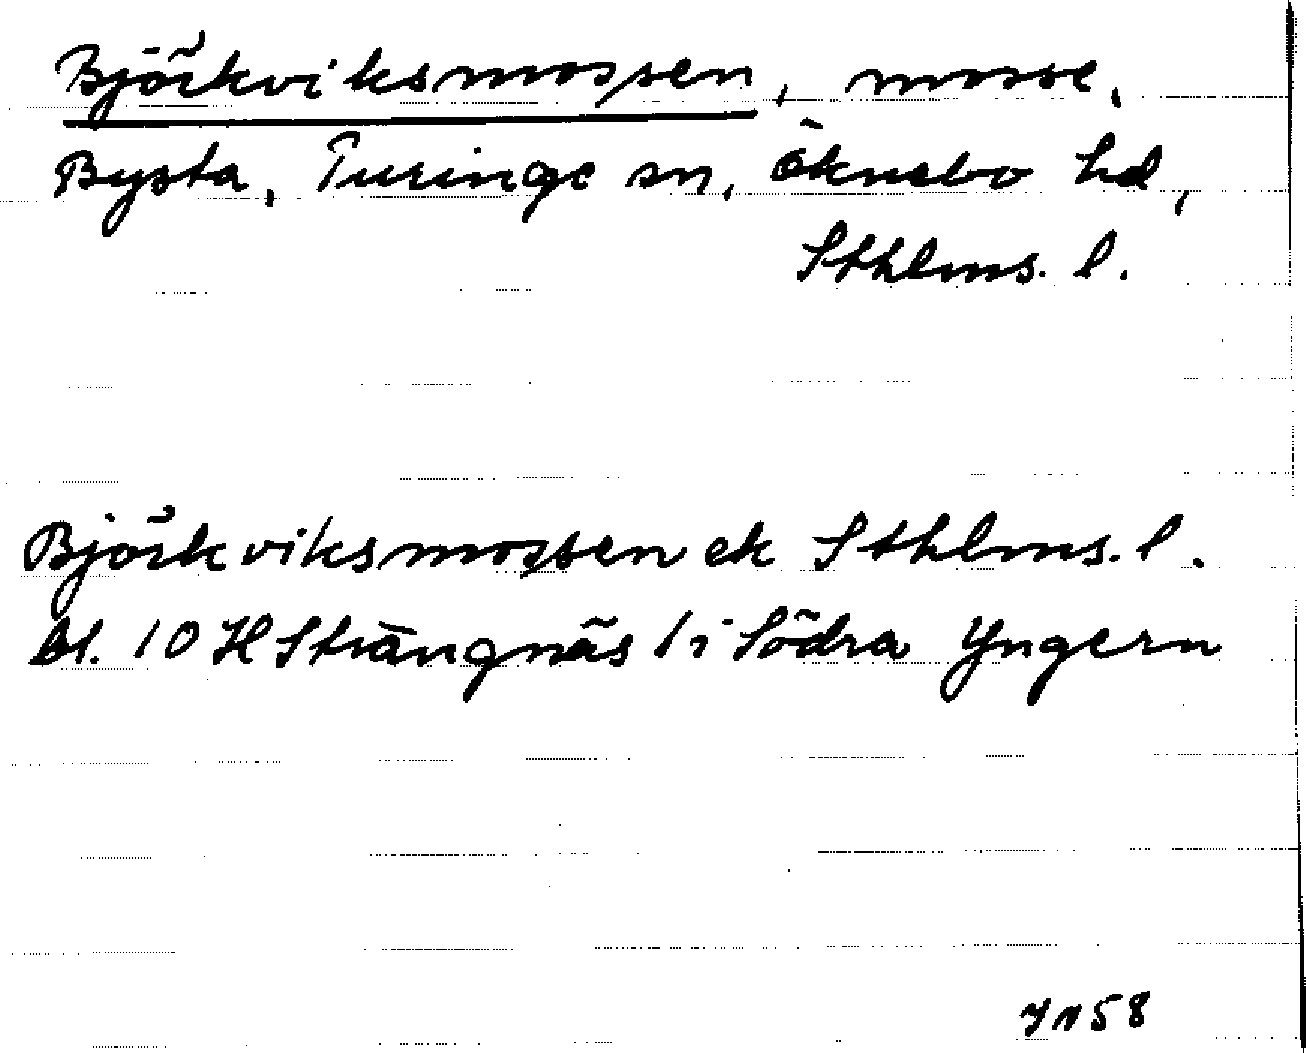 Björkviksmossen, mosse,
Bysta, Turinge sn, Öknebo hd,
Sthlms. l.
Björkviksmossen ek Sthlms. l.
bl. 10 H Strängnäs 1 i Södra Yngern
58